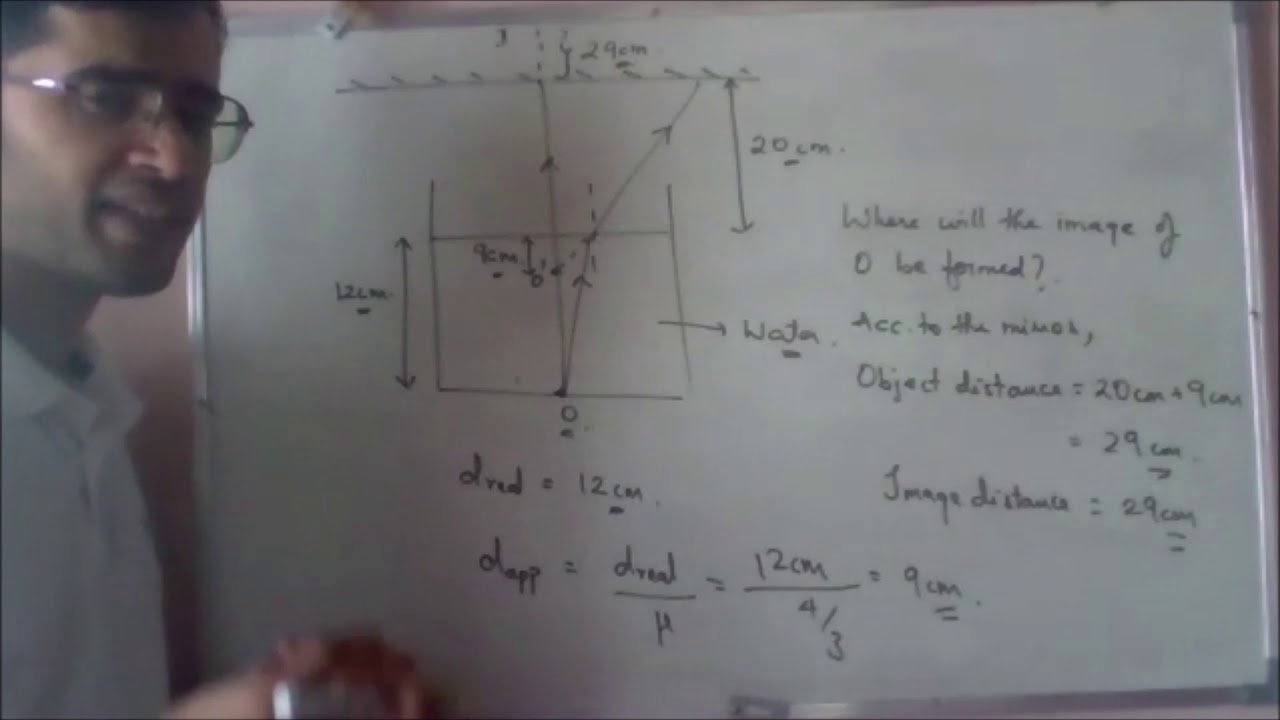 I
29cm.
20cm.
9cm.
O'
12cm.
Water.
O
Where will the image of
O be formed?
Acc. to the mirror,
Object distance = 20cm + 9cm
= 29cm.
Image distance = 29cm
dreal = 12cm.
dapp = dreal/μ = 12cm/4/3 = 9cm.